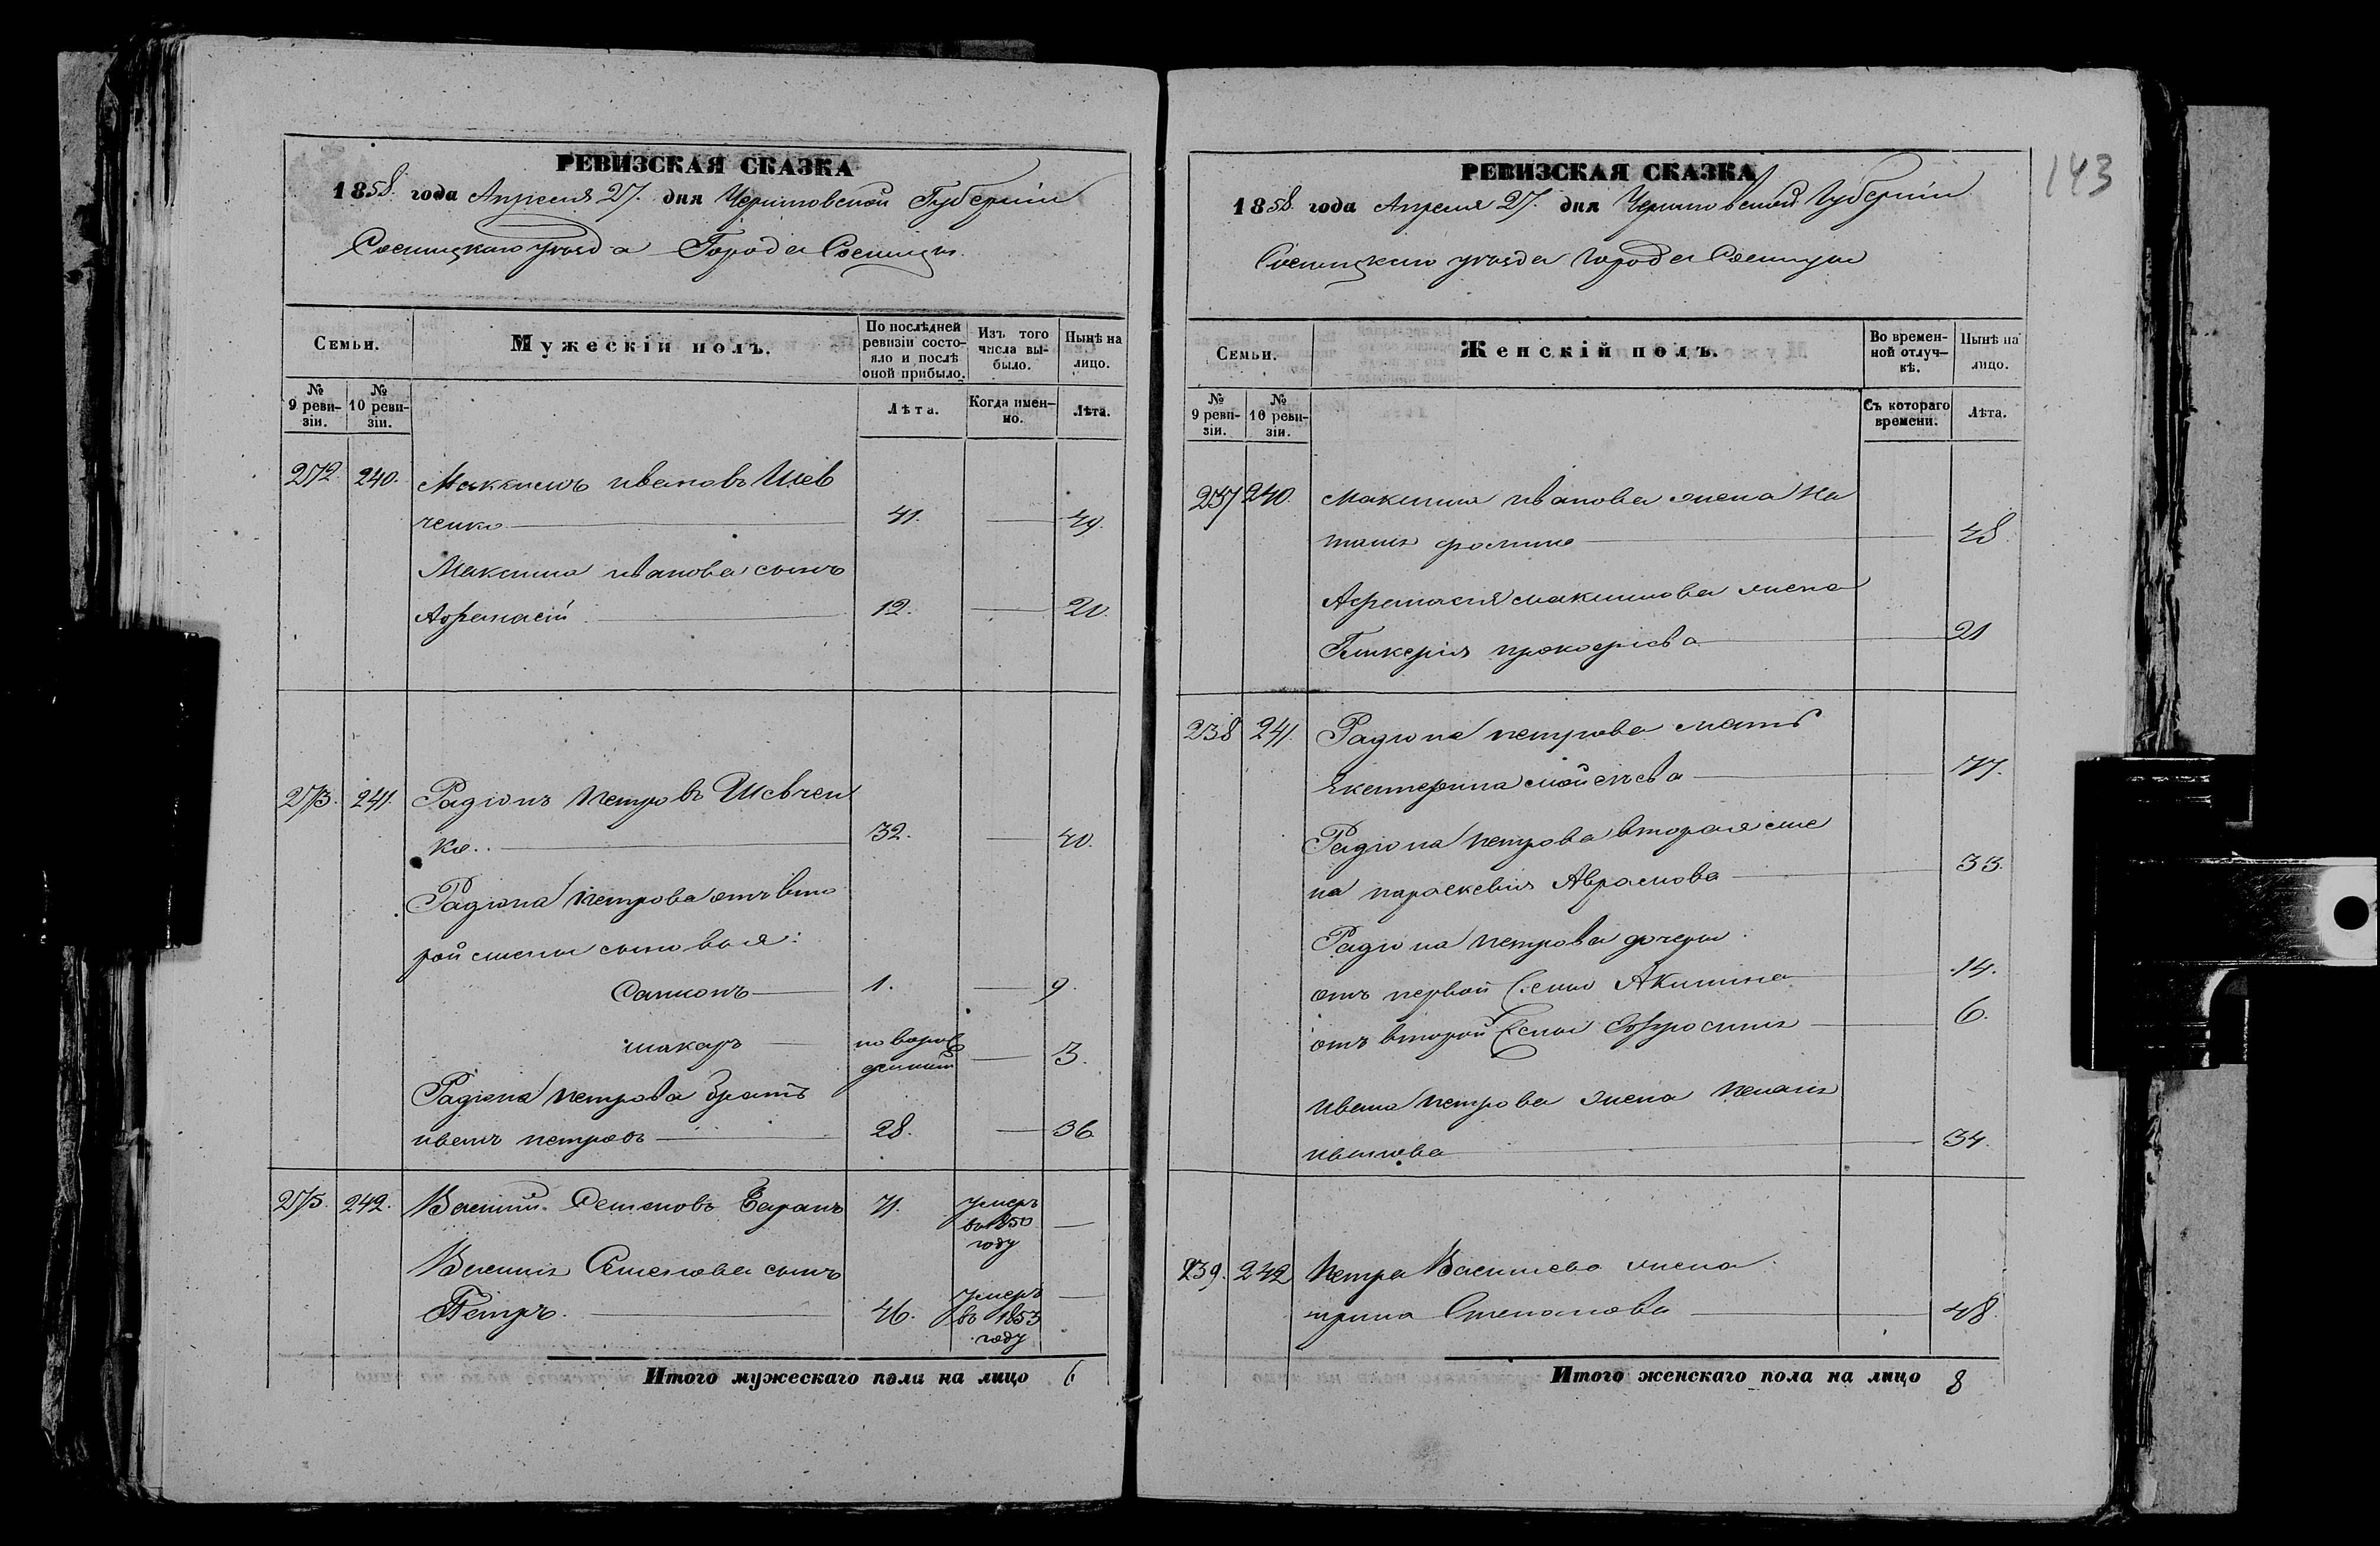 РЕВИЗСКАЯ СКАЗКА
1858 года Апреля 27. дня Черниговской Губернии
Сосницкаго уезда Города Сосницы.
Семьи.
Мужескій полъ.
По послѣдней ревизіи состояло и послѣ оной прибыло.
Изъ того числа выбыло.
Нынѣ на лицо.
№ 9 ревизіи.
№ 10 ревизіи.
Лѣта.
Когда именно.
Лѣта.
272. 240. Максимъ ивановъ Шев
ченко 41. — 49.
Максима иванова сынъ
Афанасій 12. — 20.
273. 241. Радіонъ петровъ Шевчен
ко. 32. — 40.
Радіона петрова отъ вто
рой жены сыновья:
Самсонъ 1. — 9.
макаръ новорож
денный — 3.
Радіона петрова братъ
иванъ петровъ 28. — 36
275. 242. Василий Семеновъ Баранъ 71. умеръ
въ 1850 —
году
Василия Семенова сынъ
Петръ. 46. умеръ —
въ 1853
году
Итого мужескаго пола на лицо 6
143
РЕВИЗСКАЯ СКАЗКА
1858 года Апреля 27. дня Черниговской Губернии
Сосницкаго уезда города Сосницы
Семьи.
Женскій полъ.
Во временной отлучкѣ.
Нынѣ на лицо.
№ 9 ревизіи.
№ 10 ревизіи.
Съ котораго времени.
Лѣта.
237 240. Максима иванова жена На
талія фомина 48
Афанасия максимова жена
Гликерія прокофіева 21
238 241. Радиона петрова мать
Екатерина моисѣева 77.
Радиона петрова вторая же
на параскевия Аврамова 33.
Радиона петрова дочери
отъ первой жены Акилина 14.
отъ второй жены Ефросиния 6.
ивана петрова жена
иванова 34.
239. 242 Петра Василиева жена
ирина Степанова 48.
Итого женскаго пола на лицо 8